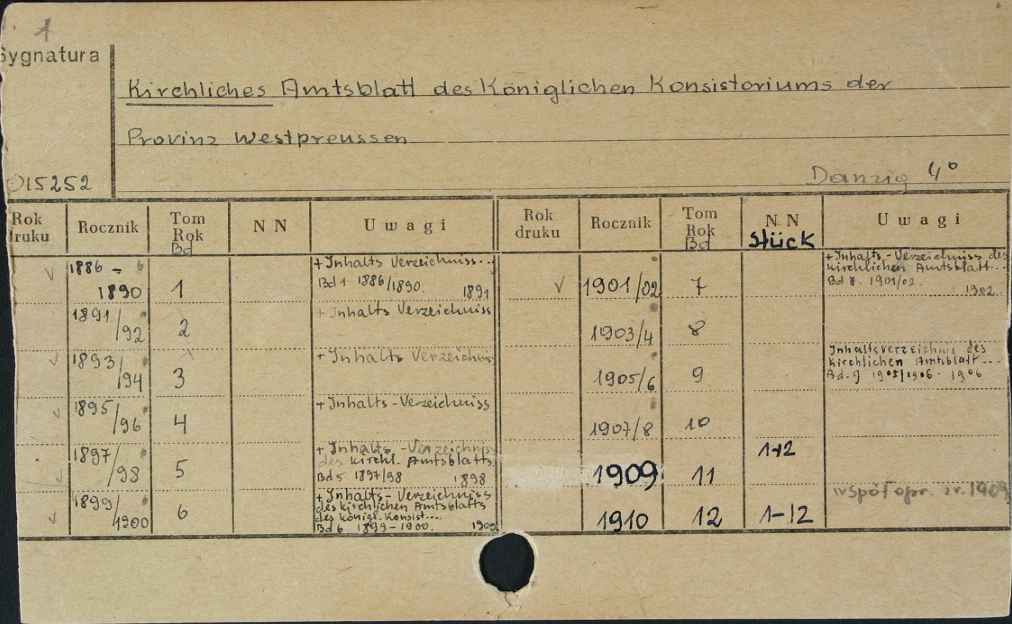 1
Sygnatura
Kirchliches Amtsblatt des Königlichen Konsistoriums der
Provinz Westpreussen
015252
Danzig 4°
Rok druku Rocznik Tom Rok Bd NN Uwagi Rok druku Rocznik Tom Rok Bd NN Stück Uwagi
v 1886 - 1890 1 + Inhalts Verzeichniss... Bd 1 1886/1890. 1891
1891/92 2 + Inhalts Verzeichniss
v 1893/94 3 + Inhalts Verzeichniss
v 1895/96 4 + Inhalts-Verzeichniss
v 1897/98 5 + Inhalts-Verzeichniss des kirchl. Amtsblatts Bd 5 1897/98 1898
v 1899/1900 6 + Inhalts-Verzeichniss des kirchlichen Amtsblatts des königl. Konsist.... Bd 6 1899-1900. 1900
v 1901/02 7 + Inhalts-Verzeichniss des kirchlichen Amtsblatt... Bd 7. 1901/02. 1902.
1903/4 8
1905/6 9 Inhaltsverzeichnis des kirchlichen Amtsblatt... Bd. 9 1905/1906. 1906
1907/8 10
1909 11 1-12
1910 12 1-12 współopr. z r. 1909